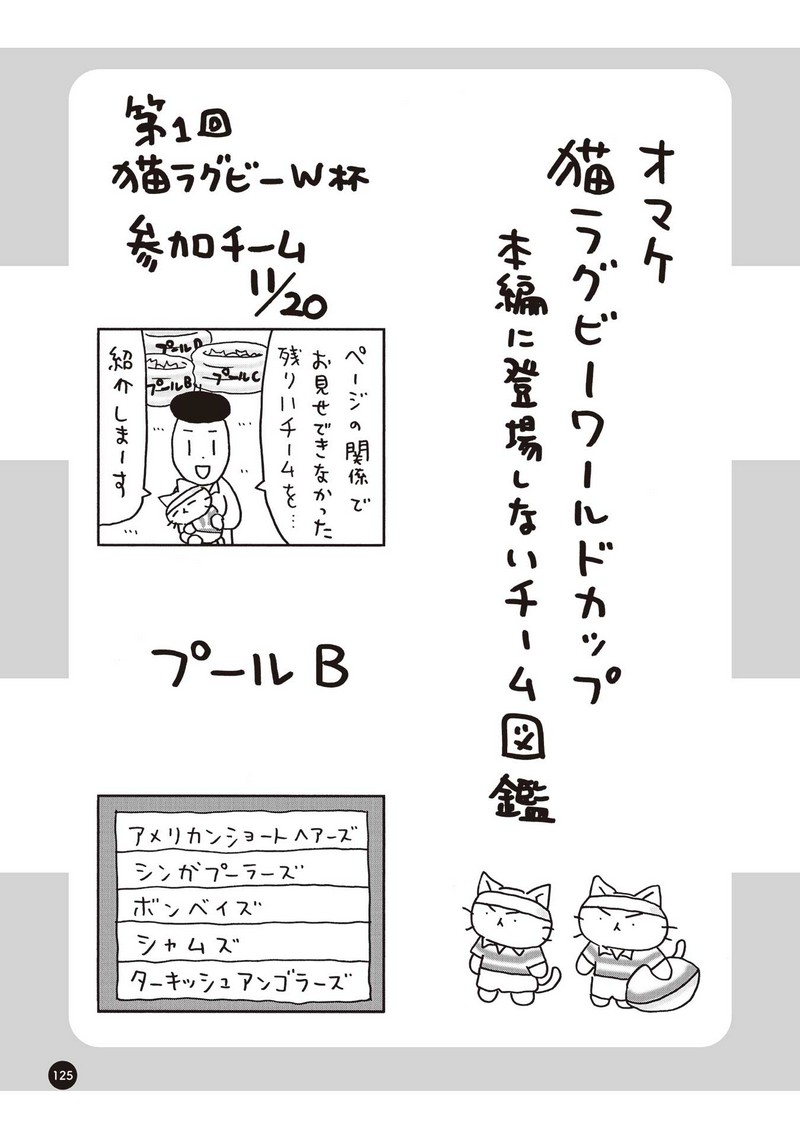 オマケ
猫ラグビーワールドカップ
本編に登場しないチーム図鑑
第1回
猫ラグビーW杯
参加チーム
11/20
プールD
プールB
プールC
ページの関係で
お見せできなかった
残りのチームを…
紹介しまーす
プールB
アメリカンショートヘアーズ
シンガプーラーズ
ボンベイズ
シャムズ
ターキッシュアンゴラーズ
125